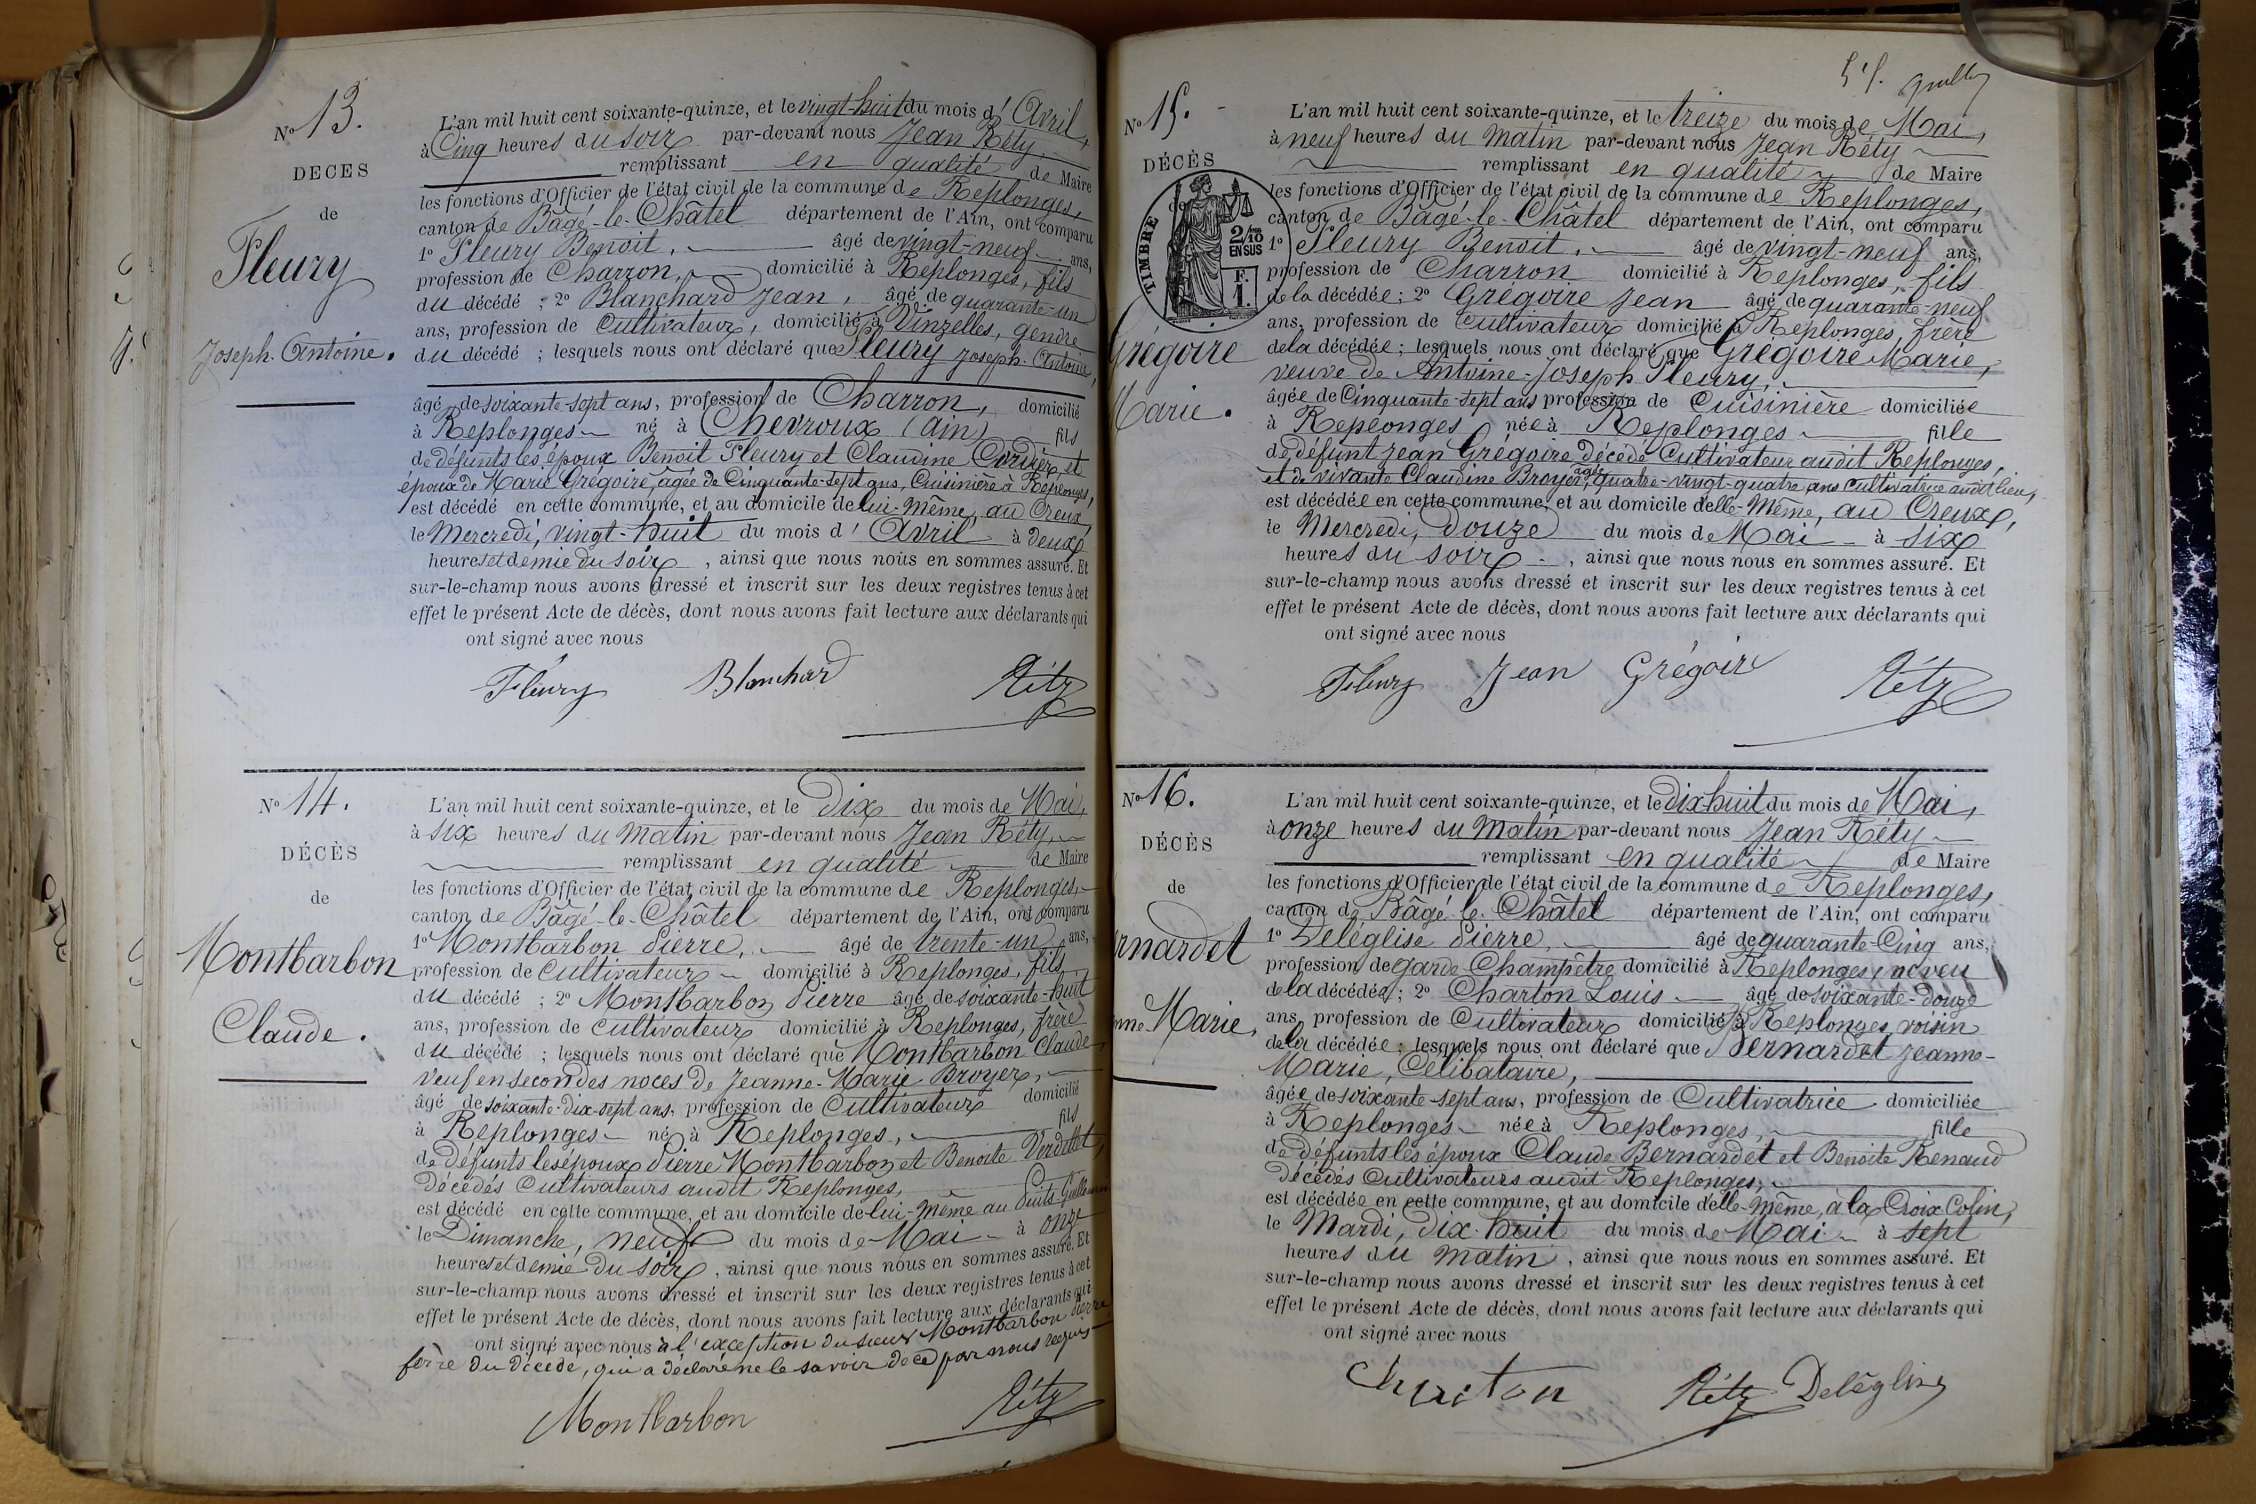 No 13.
DECES
de
Fleury
Joseph-Antoine.
L'an mil huit cent soixante-quinze, et le vingt-huit du mois d'Avril,
à Cinq heures du soir par-devant nous Jean Réty
remplissant en qualité de Maire
les fonctions d'Officier de l'état civil de la commune de Replonges,
canton de Bâgé-le-Châtel département de l'Ain, ont comparu
1o Fleury Benoit, âgé de vingt-neuf ans,
profession de Charron, domicilié à Replonges, fils
du décédé ; 2o Blanchard Jean, âgé de quarante-un
ans, profession de Cultivateur, domicilié à Vinzelles, gendre
du décédé ; lesquels nous ont déclaré que Fleury Joseph-Antoine,
âgé de soixante-sept ans, profession de Charron, domicilié
à Replonges né à Chevroux (Ain) fils
de défunts les époux Benoit Fleury et Claudine Cordier, et
époux de Marie Grégoire, âgée de Cinquante-sept ans, Cuisinière à Replonges,
est décédé en cette commune, et au domicile de lui-même, au Creux,
le Mercredi, vingt-huit du mois d'Avril à deux
heures et demie du soir, ainsi que nous nous en sommes assuré. Et
sur-le-champ nous avons dressé et inscrit sur les deux registres tenus à cet
effet le présent Acte de décès, dont nous avons fait lecture aux déclarants qui
ont signé avec nous
Fleury Blanchard Réty
No 14.
DÉCÈS
de
Montbarbon
Claude.
L'an mil huit cent soixante-quinze, et le Dix du mois de Mai,
à six heures du matin par-devant nous Jean Réty,
remplissant en qualité de Maire
les fonctions d'Officier de l'état civil de la commune de Replonges,
canton de Bâgé-le-Châtel département de l'Ain, ont comparu
1o Montbarbon Pierre, âgé de trente-un ans,
profession de Cultivateur domicilié à Replonges, fils
du décédé ; 2o Montbarbon Pierre âgé de soixante-huit
ans, profession de cultivateur domicilié à Replonges, frère
du décédé ; lesquels nous ont déclaré que Montbarbon Claude,
veuf en secondes noces de Jeanne-Marie Broyer,
âgé de soixante-dix-sept ans, profession de Cultivateur domicilié
à Replonges né à Replonges, fils
de défunts les époux Pierre Montbarbon et Benoite Verdellet,
décédés Cultivateurs audit Replonges,
est décédé en cette commune, et au domicile de lui-même au Puits
le Dimanche, neuf du mois de Mai à onze
heures et demie du soir, ainsi que nous nous en sommes assuré. Et
sur-le-champ nous avons dressé et inscrit sur les deux registres tenus à cet
effet le présent Acte de décès, dont nous avons fait lecture aux déclarants qui
ont signé avec nous à l'exception du sieur Montbarbon Pierre
frère du décédé, qui a déclaré ne le savoir de ce par nous requis
Montbarbon Réty
No 15.
DÉCÈS
TIMBRE
2/10 EN SUS
F. 1.
Grégoire
Marie.
L'an mil huit cent soixante-quinze, et le treize du mois de Mai,
à neuf heures du matin par-devant nous Jean Réty
remplissant en qualité de Maire
les fonctions d'Officier de l'état civil de la commune de Replonges,
canton de Bâgé-le-Châtel département de l'Ain, ont comparu
1o Fleury Benoit, âgé de vingt-neuf ans,
profession de Charron domicilié à Replonges, fils
de la décédée ; 2o Grégoire Jean âgé de quarante-neuf
ans, profession de Cultivateur domicilié à Replonges, frère
de la décédée ; lesquels nous ont déclaré que Grégoire Marie,
veuve de Antoine-Joseph Fleury,
âgée de Cinquante-sept ans profession de Cuisinière domiciliée
à Repeonges née à Replonges fille
de défunt Jean Grégoire décédé Cultivateur audit Replonges,
et de vivante Claudine Broyer, âgée quatre-vingt-quatre ans cultivatrice audit lieu,
est décédée en cette commune, et au domicile d'elle-même, au Creux,
le Mercredi, douze du mois de Mai à six
heures du soir, ainsi que nous nous en sommes assuré. Et
sur-le-champ nous avons dressé et inscrit sur les deux registres tenus à cet
effet le présent Acte de décès, dont nous avons fait lecture aux déclarants qui
ont signé avec nous
Fleury Jean Grégoire Réty
No 16.
DÉCÈS
de
rnardet
nne-Marie,
L'an mil huit cent soixante-quinze, et le dix-huit du mois de Mai,
à onze heures du matin par-devant nous Jean Réty
remplissant en qualité de Maire
les fonctions d'Officier de l'état civil de la commune de Replonges,
canton de Bâgé-le-Châtel département de l'Ain, ont comparu
1o Deléglise Pierre, âgé de quarante-Cinq ans,
profession de garde-Champêtre domicilié à Replonges, neveu
de la décédée ; 2o Charton Louis âgé de soixante-douze
ans, profession de Cultivateur domicilié à Replonges, voisin
de la décédée ; lesquels nous ont déclaré que Bernardet Jeanne-
Marie, Célibataire,
âgée de soixante-sept ans, profession de Cultivatrice domiciliée
à Replonges née à Replonges, fille
de défunts les époux Claude Bernardet et Benoite Renaud
décédés Cultivateurs audit Replonges,
est décédée en cette commune, et au domicile d'elle-même, à la Croix Colin,
le Mardi, dix-huit du mois de Mai à sept
heures du matin, ainsi que nous nous en sommes assuré. Et
sur-le-champ nous avons dressé et inscrit sur les deux registres tenus à cet
effet le présent Acte de décès, dont nous avons fait lecture aux déclarants qui
ont signé avec nous
Charton Réty Deléglise